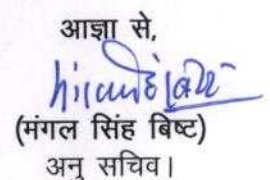 आज्ञा से,
(मंगल सिंह बिष्ट)
अनु सचिव।